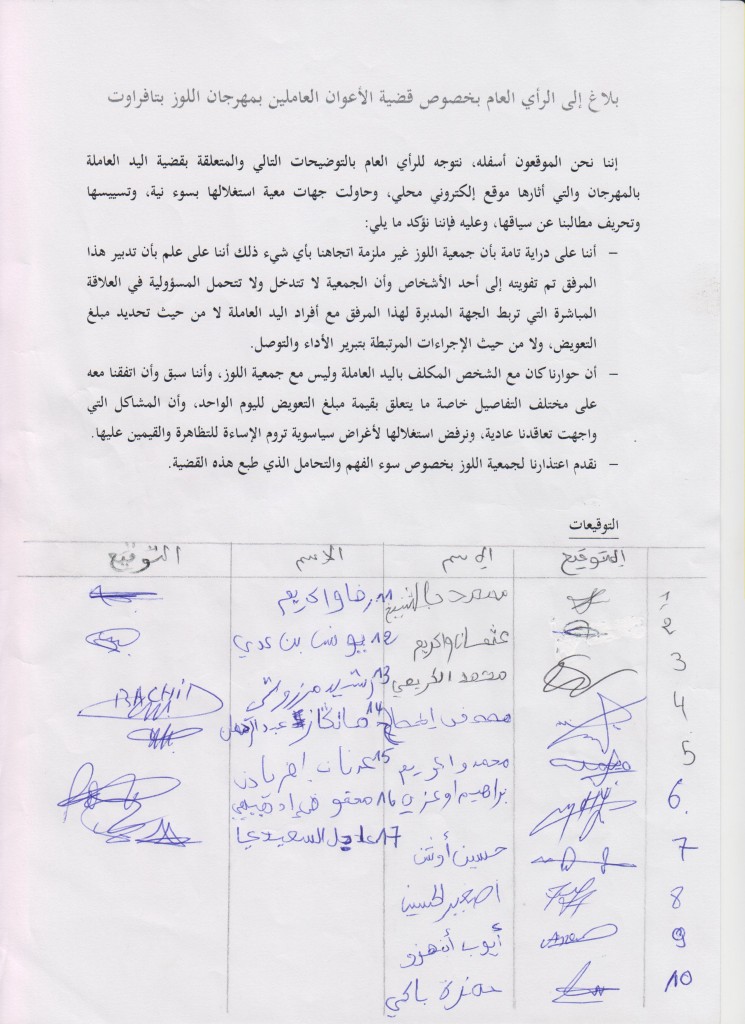 بلاغ إلى الرأي العام بخصوص قضية الأعوان العاملين بمهرجان اللوز بتافراوت
إننا نحن الموقعون أسفله، نتوجه للرأي العام بالتوضيحات التالي والمتعلقة بقضية اليد العاملة
بالمهرجان والتي أثارها موقع إلكتروني محلي، وحاولت جهات معية استغلالها بسوء نية، وتسييسها
وتحريف مطالبنا عن سياقها، وعليه فإننا نؤكد ما يلي:
– أننا على دراية تامة بأن جمعية اللوز غير ملزمة اتجاهنا بأي شيء ذلك أننا على علم بأن تدبير هذا
المرفق تم تفويته إلى أحد الأشخاص وأن الجمعية لا تتدخل ولا تتحمل المسؤولية في العلاقة
المباشرة التي تربط الجهة المدبرة لهذا المرفق مع أفراد اليد العاملة لا من حيث تحديد مبلغ
التعويض، ولا من حيث الإجراءات المرتبطة بتبرير الأداء والتوصل.
– أن حوارنا كان مع الشخص المكلف باليد العاملة وليس مع جمعية اللوز، وأننا سبق وأن اتفقنا معه
على مختلف التفاصيل خاصة ما يتعلق بقيمة مبلغ التعويض لليوم الواحد، وأن المشاكل التي
واجهت تعاقدنا عادية، ونرفض استغلالها لأغراض سياسوية تروم الإساءة للتظاهرة والقيمين عليها.
– نقدم اعتذارنا لجمعية اللوز بخصوص سوء الفهم والتحامل الذي طبع هذه القضية.
التوقيعات
التوقيع الاسم الاسم التوقيع
1 محمد 11
2 12 يونس بن عدي
3 محمد الكريمي 13 رشيد RACHID
4 14 عبد الرحمان
5 محمد واكريم 15 عدنان
6 براهيم اوعزي 16
7 حسين أوتش 17 عادل السعيدي
8 الحسين
9 أيوب أمنزو
10 حمزة باكي